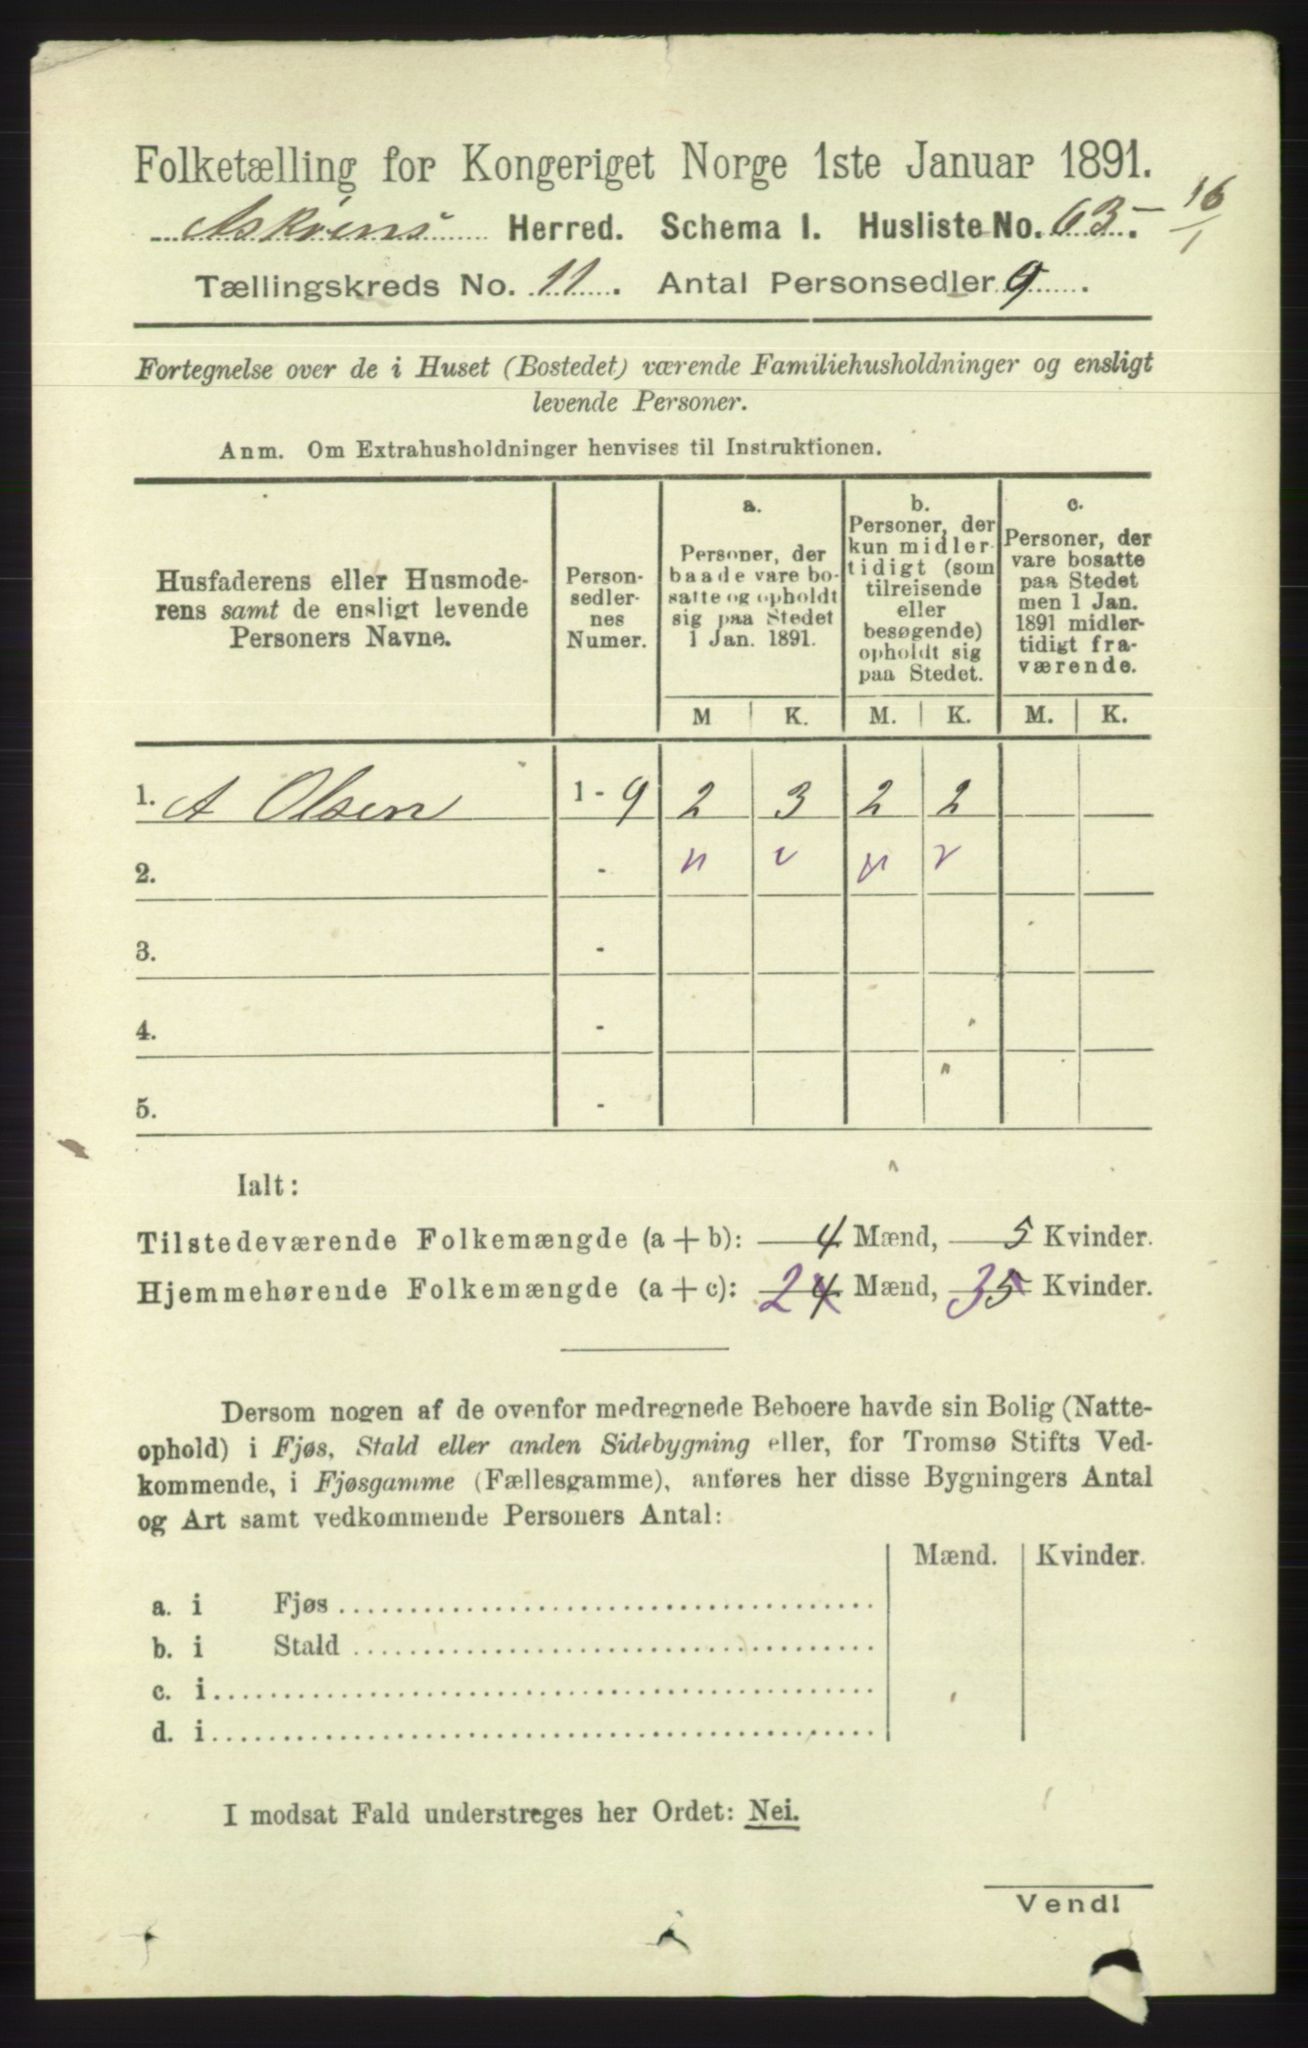 Folketælling for Kongeriget Norge 1ste Januar 1891.
Askvens Herred. Schema I. Husliste No. 63. 16/1
Tællingskreds No. 11. Antal Personsedler 9.
Fortegnelse over de i Huset (Bostedet) værende Familiehusholdninger og ensligt
levende Personer.
Anm. Om Extrahusholdninger henvises til Instruktionen.
Husfaderens eller Husmode-
rens samt de ensligt levende
Personers Navne.
Person-
sedler-
nes
Numer.
a.
Personer, der
baade vare bo-
satte og opholdt
sig paa Stedet
1 Jan. 1891.
b.
Personer, der
kun midler-
tidigt (som
tilreisende
eller
besøgende)
opholdt sig
paa Stedet.
c.
Personer, der
vare bosatte
paa Stedet
men 1 Jan.
1891 midler-
tidigt fra-
værende.
M K. M. K. M. K.
1. A Olsen 1 - 9 2 3 2 2
2. -
3. -
4. -
5. -
Ialt:
Tilstedeværende Folkemængde (a + b): 4 Mænd, 5 Kvinder.
Hjemmehørende Folkemængde (a + c): 2 4 Mænd, 3 5 Kvinder.
Dersom nogen af de ovenfor medregnede Beboere havde sin Bolig (Natte-
ophold) i Fjøs, Stald eller anden Sidebygning eller, for Tromsø Stifts Ved-
kommende, i Fjøsgamme (Fællesgamme), anføres her disse Bygningers Antal
og Art samt vedkommende Personers Antal:
Mænd. Kvinder.
a. i Fjøs
b. i Stald
c. i
d. i
I modsat Fald understreges her Ordet: Nei.
Vend!